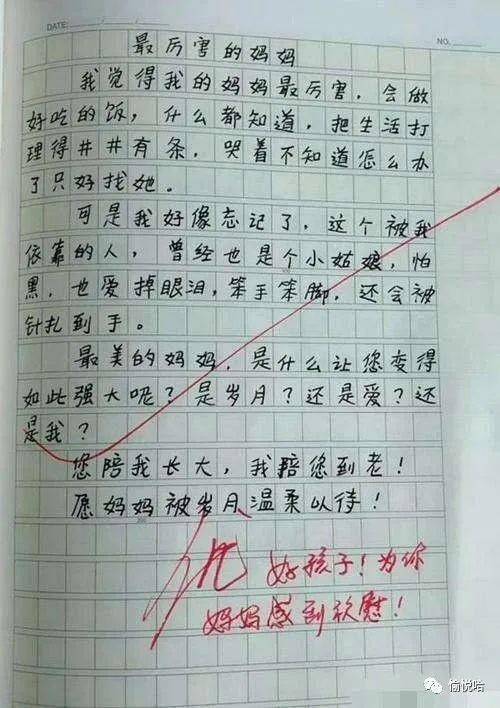 DATE: / /
NO.
最厉害的妈妈
我觉得我的妈妈最厉害，会做
好吃的饭，什么都知道，把生活打
理得井井有条，哭着不知道怎么办
了只好找她。
可是我好像忘记了，这个被我
依靠的人，曾经也是个小姑娘，怕
黑，也爱掉眼泪，笨手笨脚，还会被
针扎到手。
最美的妈妈，是什么让您变得
如此强大呢？是岁月？还是爱？还
是我？
您陪我长大，我陪您到老！
愿妈妈被岁月温柔以待！
优
好孩子！为你
妈妈感到欣慰！
愉悦哈